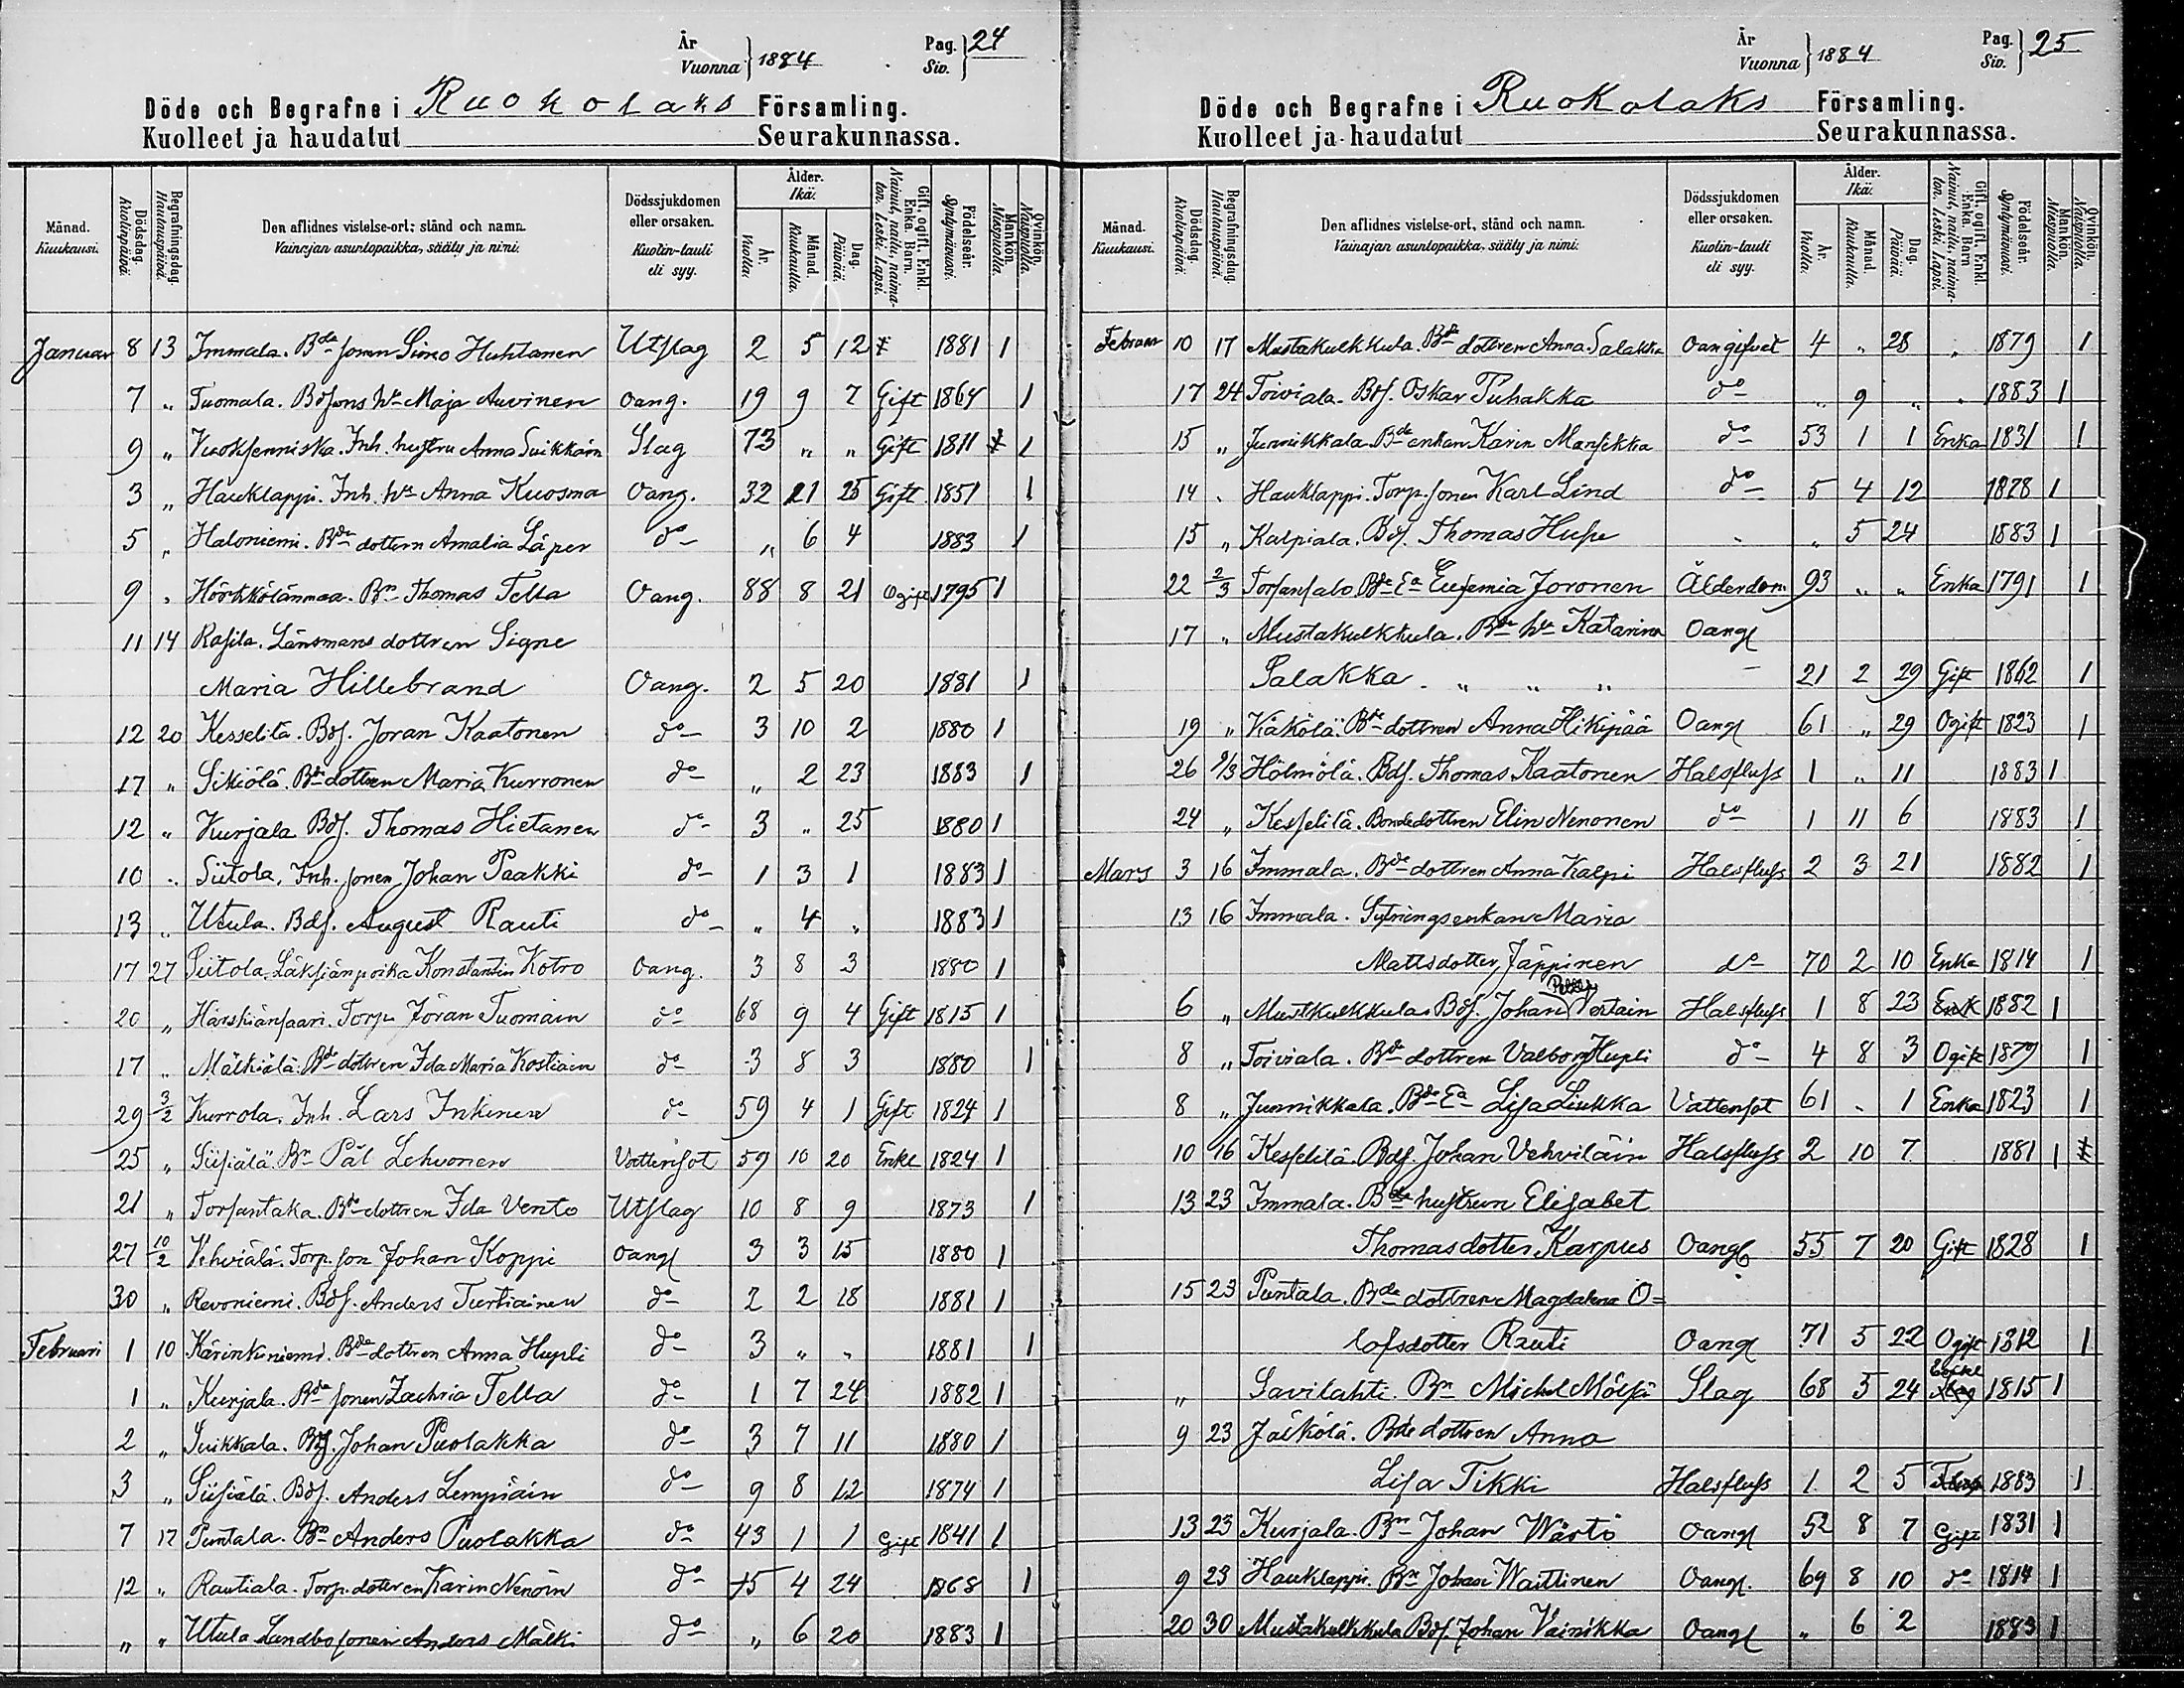 År
Vuonna } 1884
Pag.
Siv. } 24
Döde och Begrafne i Ruokolaks Församling.
Kuolleet ja haudatut Seurakunnassa.
Månad. Kuukausi.
Dödsdag. Kuolinpäivä.
Begrafningsdag. Hautauspäivä.
Den aflidnes vistelse-ort; stånd och namn. Vainajan asuntopaikka, sääty ja nimi.
Dödssjukdomen eller orsaken. Kuolin-tauti eli syy.
Ålder. Ikä.
År. Vuotta.
Månad. Kuukautta.
Dag. Päivää.
Gift, ogift, Enkl. Enka. Barn. Nainut, naitu, naimaton. Leski. Lapsi.
Födelseår. Syntymävuosi.
Mankön. Miespuolia.
Qvinkön. Naispuolia.
Januar 8 13 Immala. Bde sonen Simo Huhtanen Utslag 2 5 12 1881 1
7 " Tuomala. Bdsons h. Maja Auvinen Oang. 19 9 7 Gift 1864 1
9 " Vuoksenniska. Inh. hustru Anna Suikkain Slag 73 " " Gift 1811 1
3 " Hauklappi. Inh. h. Anna Kuosma Oang. 32 21 25 Gift 1851 1
5 " Haloniemi. Bde dottern Amalia Läper do " 6 4 1883 1
9 " Hörkkölänmaa. Bn Thomas Tella Oang. 88 8 21 Ogift 1795 1
11 14 Rasila. Länsmans dottren Signe
Maria Hillebrand Oang. 2 5 20 1881 1
12 20 Kesselitä. Bds. Joran Kaatonen do 3 10 2 1880 1
17 " Sikiölä. Bde dottren Maria Kurronen do " 2 23 1883 1
12 " Kurjala Bds. Thomas Hietanen do 3 " 25 1880 1
10 " Siitola. Inh. sonen Johan Paakki do 1 3 1 1883 1
13 " Utula. Bds. August Rauti do " 4 " 1883 1
17 27 Siitola. Läksiänpoika Konstantin Kotro Oang. 3 8 3 1880 1
20 " Härskiänsaari. Torp. Jöran Tuomain do 68 9 4 Gift 1815 1
17 " Mälkiälä. Bde dottren Ida Maria Kostiain do 3 8 3 1880 1
29 3/2 Kurrola. Inh. Lars Inkinen do 59 4 1 Gift 1824 1
25 " Siisiälä. Bn Pål Lehvonen Vattensot 59 10 20 Enkl 1824 1
21 " Torsantaka. Bde dottren Ida Vento Utslag 10 8 9 1873 1
27 10/2 Vehviälä. Torp. son Johan Koppi Oangl 3 3 15 1880 1
30 " Revoniemi. Bds. Anders Turtiainen do 2 2 18 1881 1
Februari 1 10 Kärinkiniemi. Bde dottren Anna Hupli do 3 " " 1881 1
1 " Kurjala. Bde sonen Zachria Tella do 1 7 24 1882 1
2 " Suikkala. Bds. Johan Puolakka do 3 7 11 1880 1
3 " Siisiälä. Bds. Anders Lempiäin do 9 8 12 1874 1
7 17 Puntala. Bn Anders Puolakka do 43 1 1 Gift 1841 1
12 " Rautiala. Torp. dottren Karin Nenoin do 15 4 24 1868 1
" " Utula Landbosonen Anders Mälki do " 6 20 1883 1
År
Vuonna } 1884
Pag.
Siv. } 25
Döde och Begrafne i Ruokolaks Församling.
Kuolleet ja haudatut Seurakunnassa.
Månad. Kuukausi.
Dödsdag. Kuolinpäivä.
Begrafningsdag. Hautauspäivä.
Den aflidnes vistelse-ort, stånd och namn. Vainajan asuntopaikka, sääty ja nimi.
Dödssjukdomen eller orsaken. Kuolin-tauti eli syy.
Ålder. Ikä.
År. Vuotta.
Månad. Kuukautta.
Dag. Päivää.
Gift, ogift, Enkl. Enka. Barn Nainut, naitu, naimaton. Leski. Lapsi.
Födelseår. Syntymävuosi.
Mankön. Miespuolia.
Qvinkön. Naispuolia.
Februar 10 17 Mustakulkkula. Bde dottren Anna Salakka Oangifvet 4 " 28 " 1879 1
17 24 Toiviala. Bds. Oskar Puhakka do " 9 " " 1883 1
15 " Junnikkala. Bde enkan Karin Mansikka do 53 1 1 Enka 1831 1
14 " Hauklappi. Torp. sonen Karl Lind do 5 4 12 1878 1
15 " Kalpiala. Bds. Thomas Hupe " " 5 24 1883 1
22 2/3 Torsansalo. Bde Ea Eufemia Joronen Ålderdom 93 " " Enka 1791 1
17 " Mustakulkkula. Bde h. Katarina Oangl
Salakka " " " 21 2 29 Gift 1862 1
19 " Käkölä. Bde dottren Anna Hikipää Oangl 61 " 29 Ogift 1823 1
26 9/3 Hölmölä. Bds. Thomas Kaatonen Halsfluss 1 " 11 1883 1
24 " Kesselilä. Bondedottren Elin Nenonen do 1 11 6 1883 1
Mars 3 16 Immala. Bde dottren Anna Kalpi Halsfluss 2 3 21 1882 1
13 16 Immala. Sytningsenkan Maria
Mattsdotter Jäppinen do 70 2 10 Enka 1814 1
6 " Mustkulkkulas Bds. Johan Vertain Halsfluss 1 8 23 Enk 1882 1
8 " Toiviala. Bde dottren Valborg Hupli do 4 8 3 Ogift 1879 1
8 " Junnikkala. Bde Ea Lisa Liukka Vattensot 61 " 1 Enka 1823 1
10 16 Kesselilä. Bds. Johan Vehviläin Halsfluss 2 10 7 1881 1
13 23 Immala. Bde hustrun Elisabet
Thomasdotter Karpus Oangl 55 7 20 Gift 1828 1
15 23 Puntala. Bde dottren Magdalena O=
lofsdotter Rauti Oangl 71 5 22 Ogift 1812 1
" Savilahti. Bn Michel Mölsä Slag 68 5 24 1815 1
9 23 Jäikölä. Bde dottren Anna
Lisa Tikki Halsfluss 1 2 5 1883 1
13 23 Kurjala. Bn Johan Wärtö Oangl 52 8 7 Gift 1831 1
9 23 Hauklappi. Bn Johan Waittinen Oangl. 69 8 10 do 1814 1
20 30 Mustakulkkula Bds. Johan Vainikka Oangl " 6 2 1883 1